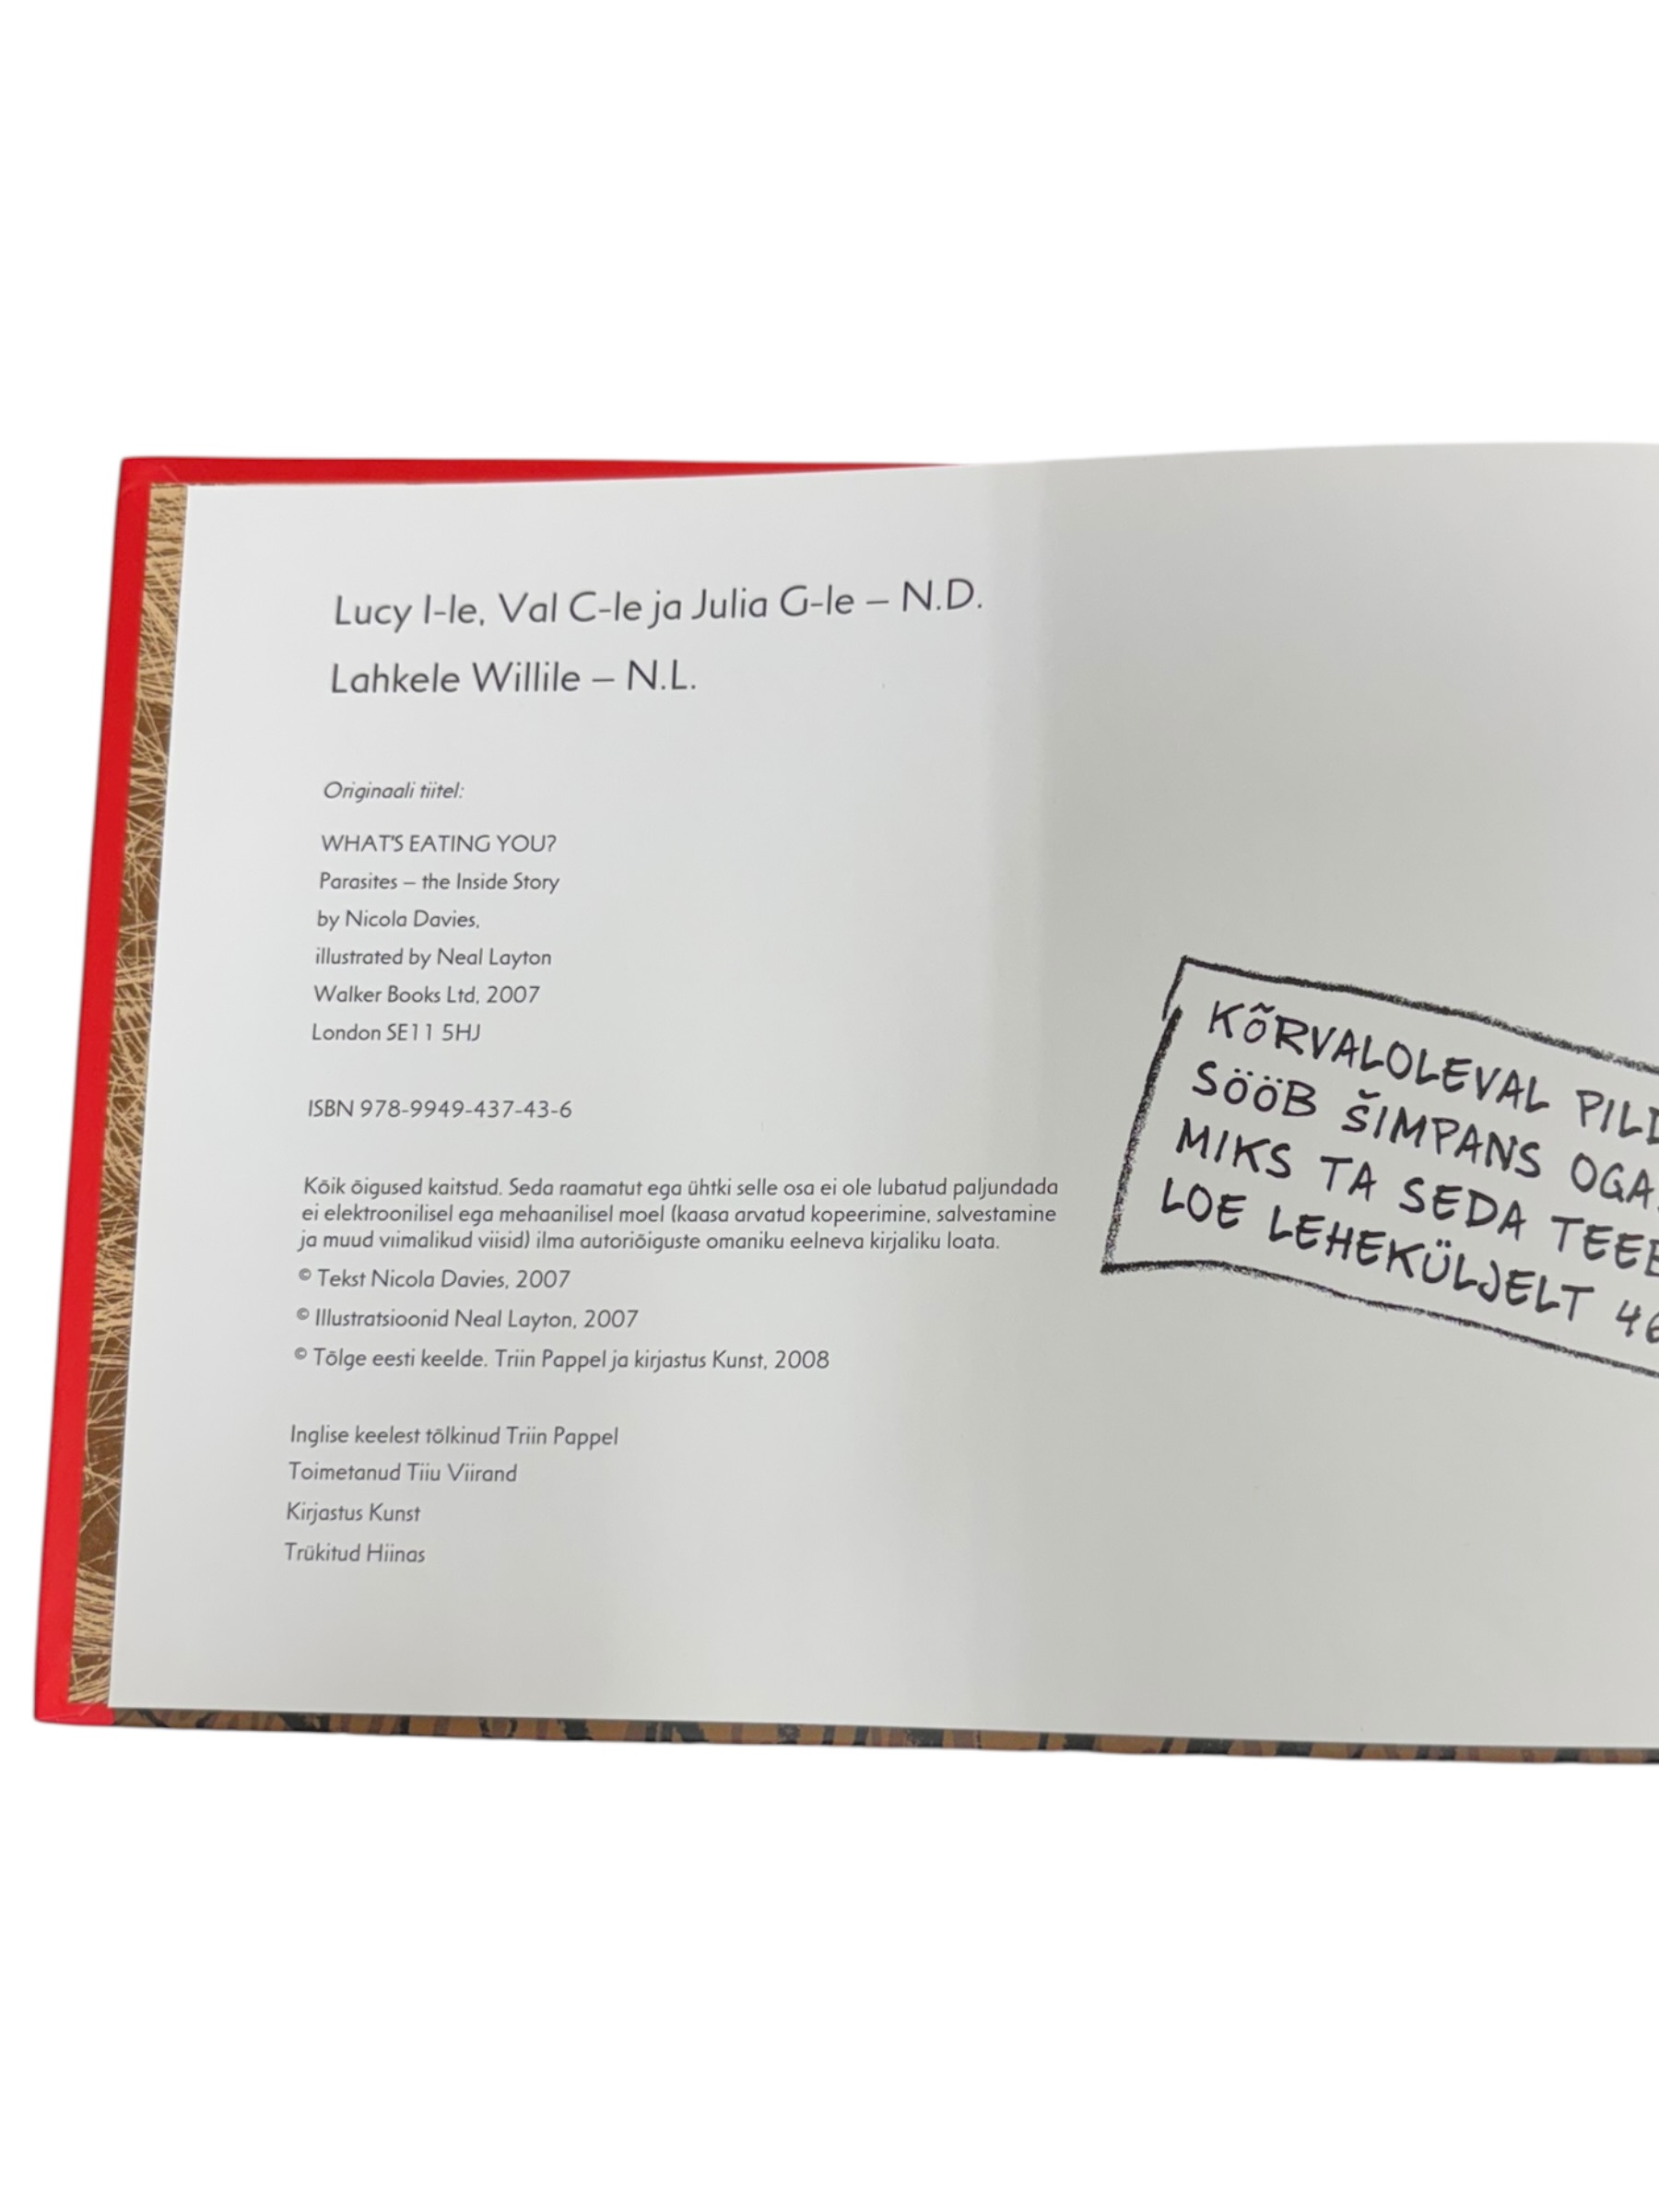 Lucy I-le, Val C-le ja Julia G-le – N.D.
Lahkele Willile – N.L.
Originaali tiitel:
WHAT'S EATING YOU?
Parasites – the Inside Story
by Nicola Davies,
illustrated by Neal Layton
Walker Books Ltd, 2007
London SE11 5HJ
ISBN 978-9949-437-43-6
Kõik õigused kaitstud. Seda raamatut ega ühtki selle osa ei ole lubatud paljundada
ei elektroonilisel ega mehaanilisel moel (kaasa arvatud kopeerimine, salvestamine
ja muud viimalikud viisid) ilma autoriõiguste omaniku eelneva kirjaliku loata.
© Tekst Nicola Davies, 2007
© Illustratsioonid Neal Layton, 2007
© Tõlge eesti keelde. Triin Pappel ja kirjastus Kunst, 2008
Inglise keelest tõlkinud Triin Pappel
Toimetanud Tiiu Viirand
Kirjastus Kunst
Trükitud Hiinas
KÕRVALOLEVAL
SÖÖB ŠIMPANS
MIKS TA SEDA
LOE LEHEKÜLJELT